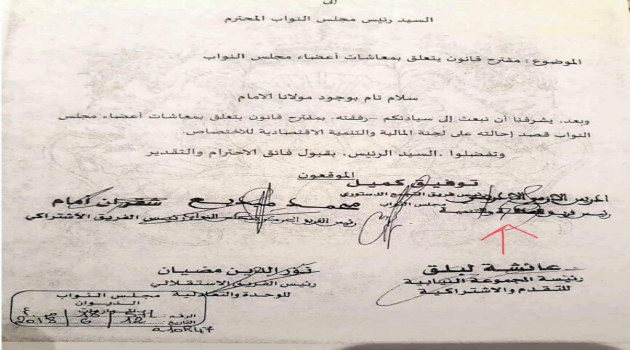 إلى
السيد رئيس مجلس النواب المحترم
الموضوع : مقترح قانون يتعلق بمعاشات أعضاء مجلس النواب
سلام تام بوجود مولانا الامام
وبعد، يشرفنا أن نبعث إلى سيادتكم -رفقته- بمقترح قانون يتعلق بمعاشات أعضاء مجلس
النواب قصد إحالته على لجنة المالية والتنمية الاقتصادية للاختصاص.
وتفضلوا ،السيد الرئيس، بقبول فائق الاحترام والتقدير
الموقعون
توفيق كميل
رئيس فريق التجمع الدستوري
مجلس النواب
محمد مبديع
شقران أمام
رئيس الفريق الاشتراكي
عائشة لبلق
رئيسة المجموعة النيابية
للتقدم والاشتراكية
نور الدين مضيان
رئيس الفريق الاستقلالي
للوحدة والتعادلية
مجلس النواب
الديوان
الرقم
التاريخ 12 6 2018